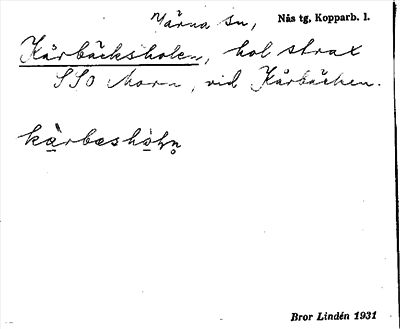 Järna sn, Nås tg, Kopparb. l.
Kårbäcksholen, hol strax
SSO Morn, vid Kårbäcken.
kàrbæshòḷn̥
Bror Lindén 1931